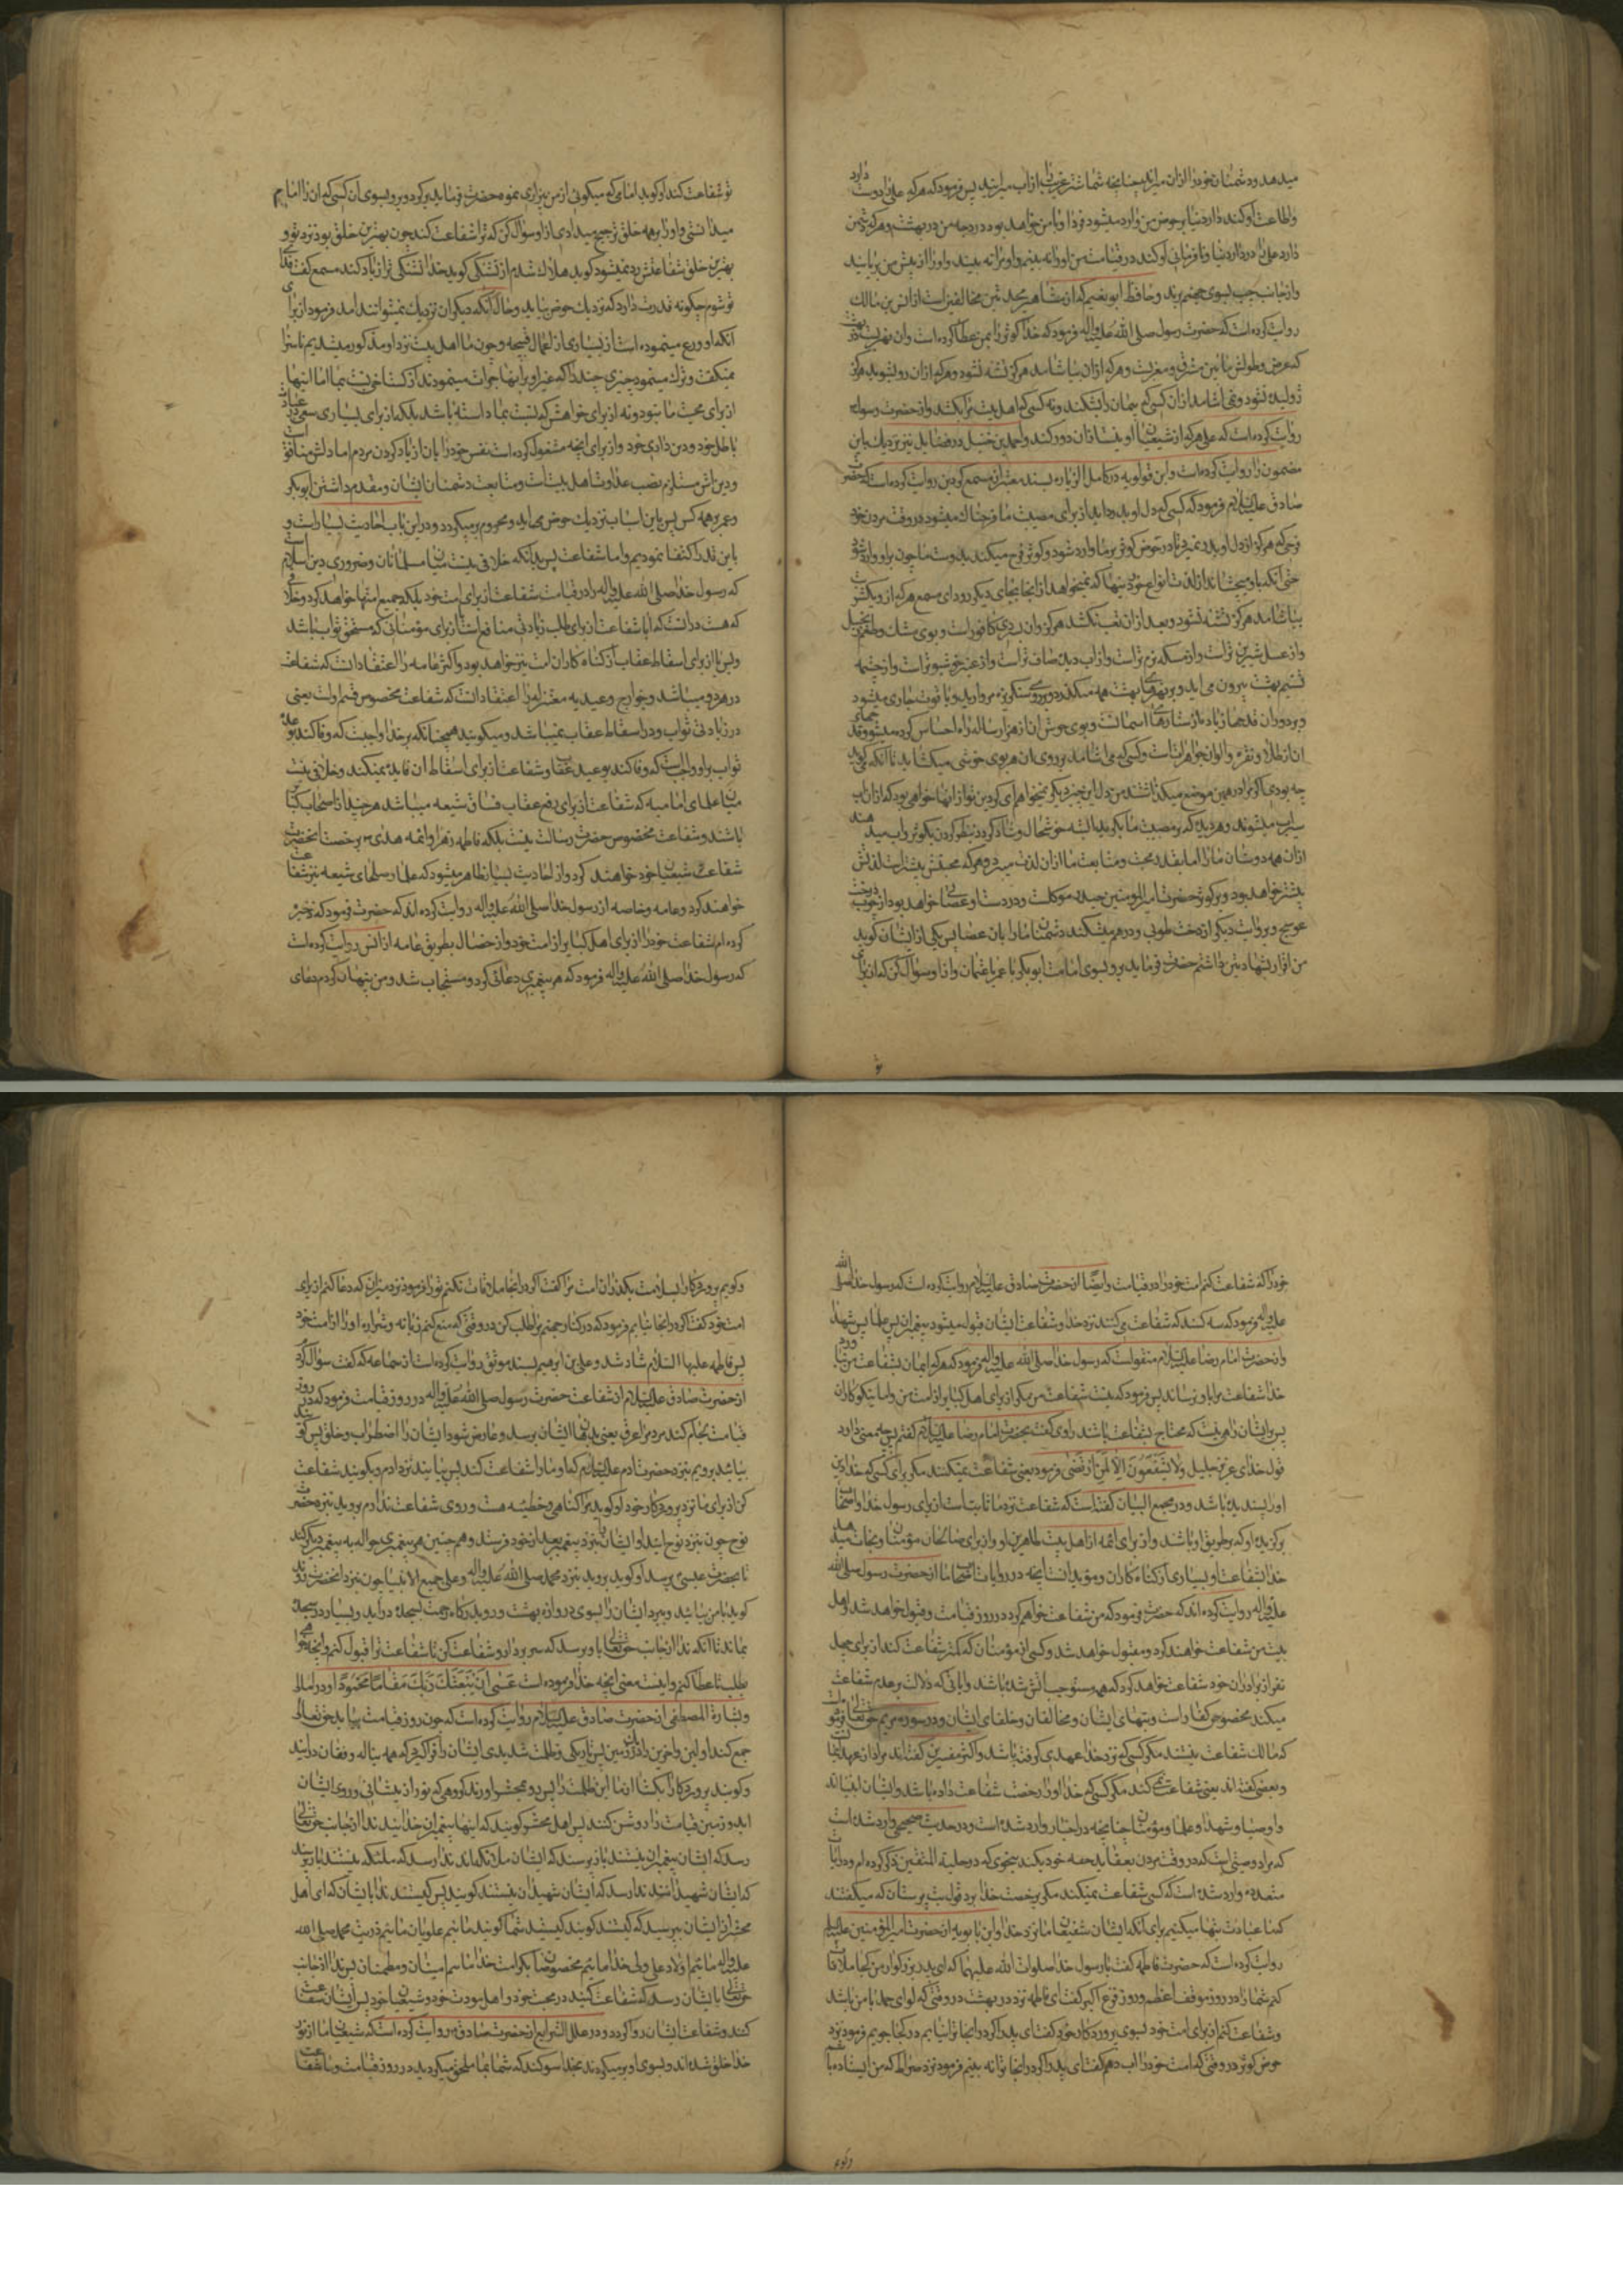 میدهد و دشمنان خود را ازان میراند چنانچه شما شتر غریب را از آب میرانید پس فرمود که هر که علی را دوست دارد
و اطاعت او کند در دار دنیا بر حوض من وارد میشود فردا و با من خواهد بود در درجه من در بهشت و هر که دشمن
دارد علی را در دار دنیا و نافرمانی او کند در قیامت من او را نه بینم و او مرا نه بیند و او را از پیش من بربایند
و از جانب چپ بسوی جهنم برند و حافظ ابو نعیم که از مشاهیر محدثین مخالفین است از انس بن مالک
روایت کرده است که حضرت رسول صلی الله علیه و اله فرمود که خدا کوثر را بمن عطا کرده است و ان نهریست در بهشت
که عرض و طولش مابین مشرق و مغربست و هر که ازان بیاشامد هرگز تشنه نشود و هر که ازان رو بشوید هرگز
ژولیده نشود و نمی اشامد ازان کسی که پیمان مرا بشکند و نه کسی که اهل بیت مرا بکشد و از حضرت رسول
روایت کرده است که علی هر که از شیعیان او نیست ازان دور کند و احمد بن حنبل در فضایل نیز نزدیک باین
مضمون را روایت کرده است و ابن قولویه در کامل الزیاره بسند معتبر از مسمع کردین روایت کرده است که حضرت
صادق علیه السلام فرمود که کسی که دل او بدرد اید از برای مصیبت ما فرحناک میشود در وقت مردن خود
فرحی که هرگز از دل او بدر نمیرود تا در حوض کوثر بر ما وارد شود و کوثر فرح میکند بدوست ما چون بر او وارد شود
حتی آنکه باو میچشاند از لذت انواع خوردنیها که نمیخواهد از انجا بجای دیگر رود ای مسمع هر که از او یک شربت
بیاشامد هرگز تشنه نشود و بعد ازان تعب نکشد هرگز و ان بسردی کافور است و بوی مشک و طعم زنجبیل
و از عسل شیرین تر است و از مسکه نرم تر است و از اب دیده صاف تر است و از عنبر خوشبوتر است و از چشمه
تسنیم بهشت بیرون می اید و بر نهرهای بهشت همه میگذرد و بر روی سنگریزه مروارید و یاقوت جاری میشود
و بر دوران قدحها زیاده از ستارهای اسمانست و بوی خوش ان از هزار ساله راه احساس کرده میشود و قدحهای
ان از طلا و نقره و الوان جواهر است و کسی که می اشامد بر روی ان هر بوی خوشی میگشاید تا آنکه می گوید
چه بودی اگر مرا در همین موضع میگذاشتند من دل این چیز دیگر نمیخواهم ای کردین تو از انها خواهی بود که ازان اب
سیراب میشوند و هر دیده که بر مصیبت ما بگرید البته خوشحال و شاد گردد بنظر کردن بکوثر و اب میدهند
ازان همه دوستان ما را اما بقدر محبت و متابعت ما ازان لذت میبرد و هر که محبتش بیشتر است لذتش
بیشتر خواهد بود و بر کوثر حضرت امیر المومنین ع موکلست و در دست او عصائی خواهد بود از چوب درخت
عوسج و بروایت دیگر از درخت طوبی و درهم میشکند دشمنان ما را بان عصا پس یکی از ایشان گوید
من اقرار بشهادتین داشتم حضرت فرماید برو بسوی امامت ابو بکر یا عمر یا عثمان و از او سوال کن که از برای
تو شفاعت کند او گوید امامی که میگوئی از من بیزاری نمود حضرت فرماید برگرد و برو بسوی ان کسی که ان را امام
میدانستی و او را بر همه خلق ترجیح میدادی از او سوال کن که ترا شفاعت کند چون بهترین خلق بود نزد تو و
بهترین خلق شفاعتش رد نمیشود گوید هلاک شدم از تشنگی گوید خدا تشنگی ترا زیاد کند مسمع گفت فدای
تو شوم چگونه قدرت دارد که نزدیک حوض بیاید و حال آنکه دیگران نزدیک نمیتوانند امد فرمود از برای
انکه او ورع مینموده است از بسیاری از اعمال قبیحه و چون ما اهل بیت نزد او مذکور میشدیم ناسزا
نمیگفت و ترک مینمود چیزی چند را که غیر او بر انها جرات مینمودند
از برای محبت ما نبود و نه از برای خواهش که نسبت بما داشته باشد بلکه از برای بسیاری سعی در عبادت
باطل خود و دین داری خود و از برای انچه مشغول کرده است نفس خود را بان از یاد کردن مردم اما دلش منافق است
و دین اش مستلزم نصب عداوت اهل بیتست و متابعت دشمنان ایشان و مقدم داشتن ابو بکر
و عمر بر همه کس پس باین اسباب نزدیک حوض میاید و محروم برمیگردد و در این باب احادیث بسیار است و
باین قدر اکتفا نمودیم و اما شفاعت پس بدانکه خلافی نیست میان مسلمانان و ضروری دین اسلام است
که رسول خدا صلی الله علیه و اله را در قیامت شفاعت از برای امت خود بلکه جمیع امتها خواهد کرد و خلافی
که هست در انست که آیا شفاعت از برای طلب زیادتی منافع است از برای مؤمنانی که مستحق ثواب باشند
و بس یا از برای اسقاط عقاب از گناه کاران امت نیز خواهد بود و اکثر عامه را اعتقاد انست که شفاعت
در هر دو میباشد و خوارج و عیدیه معتزله را اعتقاد انست که شفاعت مخصوص قسم اولست یعنی
در زیادتی ثواب و در اسقاط عقاب نمیباشد و میگویند همچنانکه بر خدا واجبست که وفا کند بوعده
ثواب بر او واجب است که وفا کند بوعید عقاب و شفاعت از برای اسقاط ان فایده نمیکند و خلافی نیست
میان علمای امامیه که شفاعت از برای رفع عقاب فساق شیعه میباشد هر چند از اصحاب کبایر
باشند و شفاعت مخصوص حضرت رسالت نیست بلکه فاطمه زهرا و ائمه هدی برخصت انحضرت
شفاعت شیعیان خود خواهند کرد و از احادیث بسیار ظاهر میشود که علما و صلحای شیعه نیز شفاعت
خواهند کرد و عامه و خاصه از رسول خدا صلی الله علیه و اله روایت کرده اند که حضرت فرمود که ذخیره
کرده ام شفاعت خود را از برای اهل کبایر از امت خود و از خصال بطریق عامه از انس روایت کرده است
که رسول خدا صلی الله علیه و اله فرمود که هر پیغمبری دعائی کرد و مستجاب شد و من پنهان کردم دعای
خود را که شفاعت کنم امت خود را در قیامت و ایضا از حضرت صادق علیه السلام روایت کرده است که رسول خدا صلی الله
علیه و اله فرمود که سه کسند که شفاعت می کنند نزد خدا و شفاعت ایشان قبول میشود پیغمبران پس علما پس شهدا
و از حضرت امام رضا علیه السلام منقولست که رسول خدا صلی الله علیه و اله فرمود که هر که ایمان بشفاعت من نیاورد
خدا شفاعت مرا باو نرساند پس فرمود که نیست شفاعت من مگر از برای اهل کبایر از امت من و اما نیکوکاران
پس بر ایشان راهی نیست که محتاج بشفاعت باشند راوی گفت بحضرت امام رضا علیه السلام گفتم پس چه معنی دارد
قول خدای عز و جلیل وَلا یَشْفَعُونَ اِلّا لِمَنِ ارْتَضی فرمود یعنی شفاعت نمیکنند مگر برای کسی که خدا دین
او را پسندیده باشد و در مجمع البیان گفته است که شفاعت نزد ما ثابتست از برای رسول خدا و اصحاب
برگزیده او که بر طریق او باشند و از برای ائمه از اهل بیت طاهرین او و از برای صالحان مؤمنان و نجات میدهد
خدا بشفاعت او بسیاری از گناه کاران و مؤید انست انچه در روایات اصحاب ما از حضرت رسول صلی الله
علیه و اله روایت کرده اند که حضرت فرمود که من شفاعت خواهم کرد در روز قیامت و قبول خواهد شد و اهل
بیت من شفاعت خواهند کرد و مقبول خواهد شد و کسی از مؤمنان که کمتر شفاعت کند از برای چهل
نفر از برادران خود شفاعت خواهد کرد که همه مستوجب اتش شده باشند و ایاتی که دلالت بر عدم شفاعت
میکند مخصوص کفار است و بتهای ایشان و مخالفان و خلفای ایشان و در سوره مریم حق تعالی فرموده
که مالک شفاعت نیستند مگر کسی که نزد خدا عهدی گرفته باشد و اکثر مفسرین گفته اند مراد از عهد ایمانست
و بعضی گفته اند یعنی شفاعت نمی کند مگر کسی که خدا او را رخصت شفاعت داده باشد و ایشان انبیا اند
و اوصیا و شهدا و علما و مؤمنان چنانچه در اخبار وارد شده است و در حدیث صحیحی وارد شده است
که مراد وصیتی است که در وقت مردن بعقاید حقه خود بکند بنحوی که در حلیة المتقین ذکر کرده ام و در ایات
متعدده وارد شده است که کسی شفاعت نمیکند مگر برخصت خدا برد قول بت پرستان که میگفتند
که ما عبادت بتها میکنیم برای آنکه ایشان شفیعان ما نزد خدا و ابن بابویه از حضرت امیر المؤمنین علیه السلام
روایت کرده است که حضرت فاطمه گفت با رسول خدا صلوات الله علیهما که ای پدر بزرگوار من کجا ملاقات
کنم شما را در روز موقف اعظم و روز فزع اکبر گفت ای فاطمه نزد در بهشت در وقتی که لوای حمد با من باشد
و شفاعت کنم از برای امت خود بسوی پروردکار خود گفت ای پدر اگر در انجا ترا نیابم در کجا جویم فرمود نزد
حوض کوثر در وقتی که امت خود را اب دهم گفت ای پدر اگر در انجا ترا نه بینم فرمود نزد صراط که من ایستاده باشم
و گویم پروردکارا بسلامت بگذران امت مرا گفت اگر در انجا ملاقات نکنم ترا فرمود نزد میزان که دعا کنم از برای
امت خود گفت اگر در انجا نیابم فرمود که در کنار جهنم مرا طلب کن در وقتی که منع کنم زبانه و شراره او را از امت خود
پس فاطمه علیها السلام شاد شد و علی بن ابرهیم بسند موثق روایت کرده است از سماعه که گفت سؤال کرد
از حضرت صادق علیه السلام از شفاعت حضرت رسول صلی الله علیه و اله در روز قیامت فرمود که در روز
قیامت لجام کند مردم را عرق یعنی بدهنهای ایشان برسد و عارض شود ایشان را اضطراب و خلق پس گویند
بیائید برویم بنزد حضرت ادم علیه السلام که او ما را شفاعت کند پس بیایند نزد ادم و بگویند شفاعت
کن از برای ما نزد پروردکار خود او گوید مرا گناهی و خطیئه هست و روی شفاعت ندارم بروید بنزد حضرت
نوح چون بنزد نوح ایند او ایشان را بنزد پیغمبر بعد از خود فرستد و همچنین هر پیغمبری حواله به پیغمبر دیگر کند
تا بحضرت عیسی برسد او گوید بروید بنزد محمد صلی الله علیه و اله و علی جمیع الانبیا چون بنزد انحضرت روند
گوید با من بیائید و ببرد ایشان را بسوی دروازه بهشت و رو بدرگاه رحمت بسجده درآید و بسیار در سجده
بماند تا آنکه ندا از جانب حق تعالی باو برسد که سر بردار و شفاعت کن تا شفاعت ترا قبول کنم و انچه خواهی
طلب تا عطا کنم و اینست معنی انچه خدا فرموده است عَسی اَنْ یَبْعَثَکَ رَبُّکَ مَقاماً مَحْمُوداً و در امالی
و بشارة المصطفی از حضرت صادق علیه السلام روایت کرده است که چون روز قیامت بیاید حق تعالی
جمع کند اولین و اخرین را در زمین پس تاریکی و ظلمت شدیدی ایشان را فرا گیرد که همه بناله و فغان درایند
و گویند پروردکارا بگشا از ما این ظلمت را پس رو بمحشر اورند گروهی که نور از پیشانی و روی ایشان
اید و زمین قیامت را روشن کنند پس اهل محشر گویند که اینها پیغمبران خدایند ندا از جانب حق تعالی
رسد که ایشان پیغمبران نیستند باز پرسند که ایشان ملائکه اند ندا رسد که ملئکه نیستند باز پرسند
که ایشان شهیدانند ندا رسد که ایشان شهیدان نیستند گویند پس کیستند ندا بایشان که ای اهل
محشر از ایشان بپرسید که کیستند گویند کیستید شما گویند مائیم علویان مائیم ذریت محمد صلی الله
علیه و اله مائیم اولاد علی ولی خدا مائیم مخصوصان بکرامت خدا مائیم ایمنان و مطمئنان پس ندا از جانب
حق تعالی بایشان رسد که شفاعت کنید در محبت خود و اهل مودت خود و شیعیان خود پس ایشان شفاعت
کنند و شفاعت ایشان روا گردد و در علل الشرایع از حضرت صادق ع روایت کرده است که شیعیان ما از نور
خدا خلق شده اند و بسوی او برمیگردند بخدا سوگند که شما بما ملحق میگردید در روز قیامت و ما شفاعت